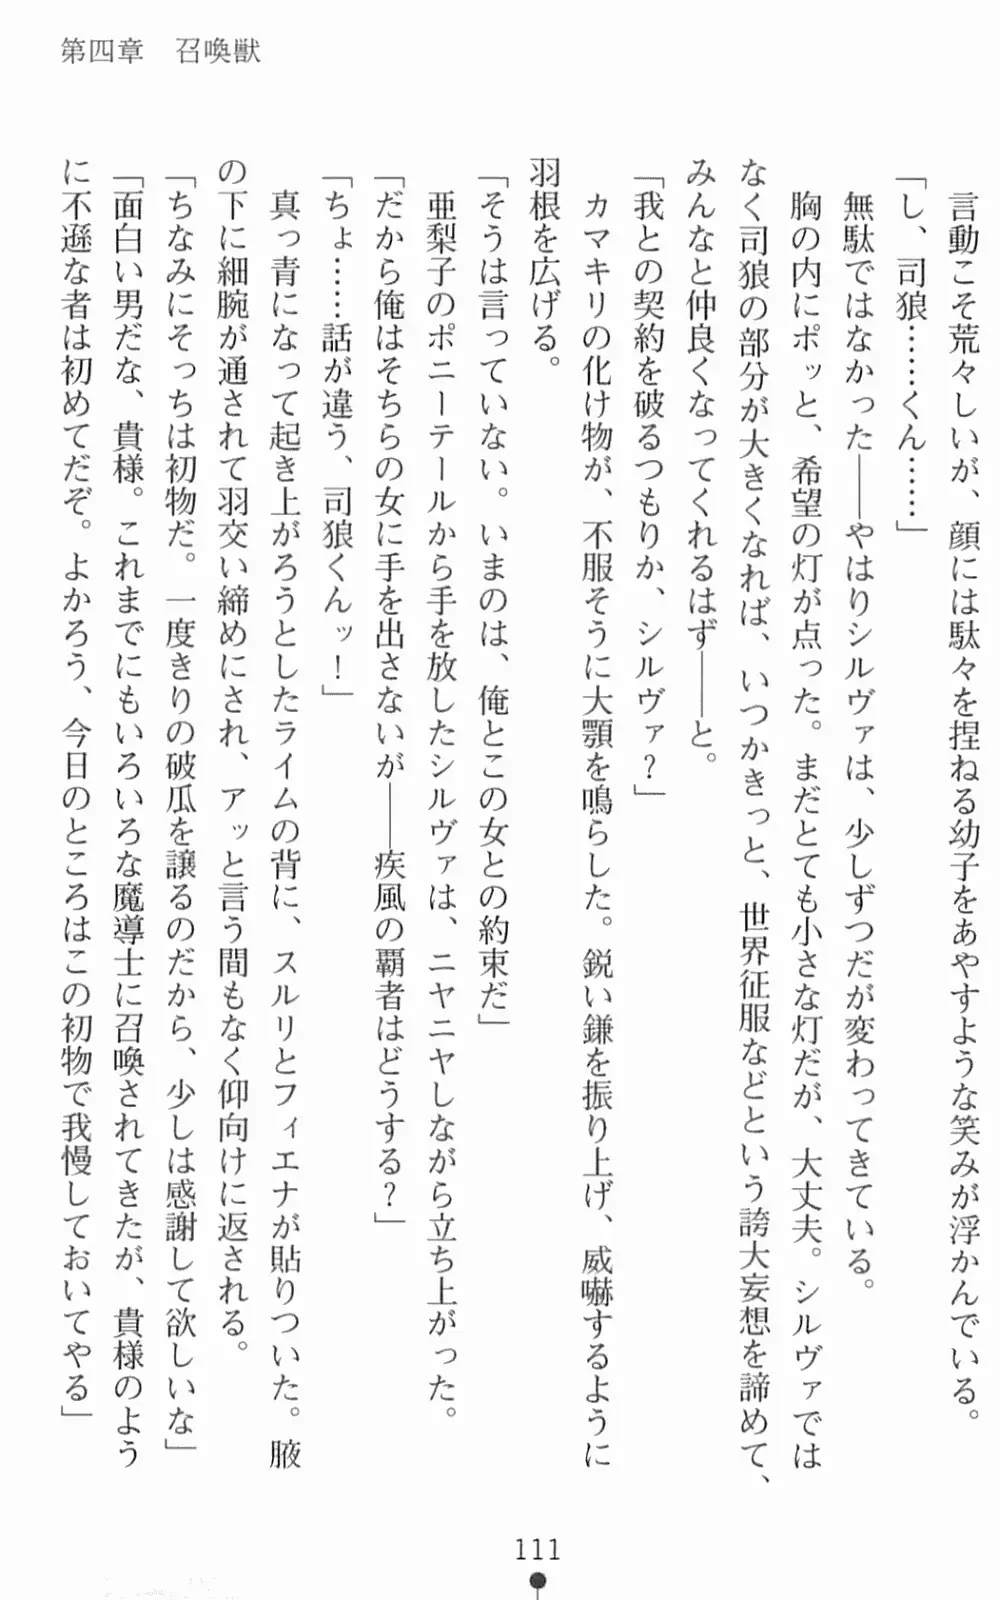 第四章　召喚獣
　言動こそ荒々しいが、顔には駄々を捏ねる幼子をあやすような笑みが浮かんでいる。
「し、司狼……くん……」
　無駄ではなかった――やはりシルヴァは、少しずつだが変わってきている。
　胸の内にポッと、希望の灯が点った。まだとても小さな灯だが、大丈夫。シルヴァでは
なく司狼の部分が大きくなれば、いつかきっと、世界征服などという誇大妄想を諦めて、
みんなと仲良くなってくれるはず――と。
「我との契約を破るつもりか、シルヴァ？」
　カマキリの化け物が、不服そうに大顎を鳴らした。鋭い鎌を振り上げ、威嚇するように
羽根を広げる。
「そうは言っていない。いまのは、俺とこの女との約束だ」
　亜梨子のポニーテールから手を放したシルヴァは、ニヤニヤしながら立ち上がった。
「だから俺はそちらの女に手を出さないが――疾風の覇者はどうする？」
「ちょ……話が違う、司狼くんッ！」
　真っ青になって起き上がろうとしたライムの背に、スルリとフィエナが貼りついた。腋
の下に細腕が通されて羽交い締めにされ、アッと言う間もなく仰向けに返される。
「ちなみにそっちは初物だ。一度きりの破瓜を譲るのだから、少しは感謝して欲しいな」
「面白い男だな、貴様。これまでにもいろいろな魔導士に召喚されてきたが、貴様のよう
に不遜な者は初めてだぞ。よかろう、今日のところはこの初物で我慢しておいてやる」
111